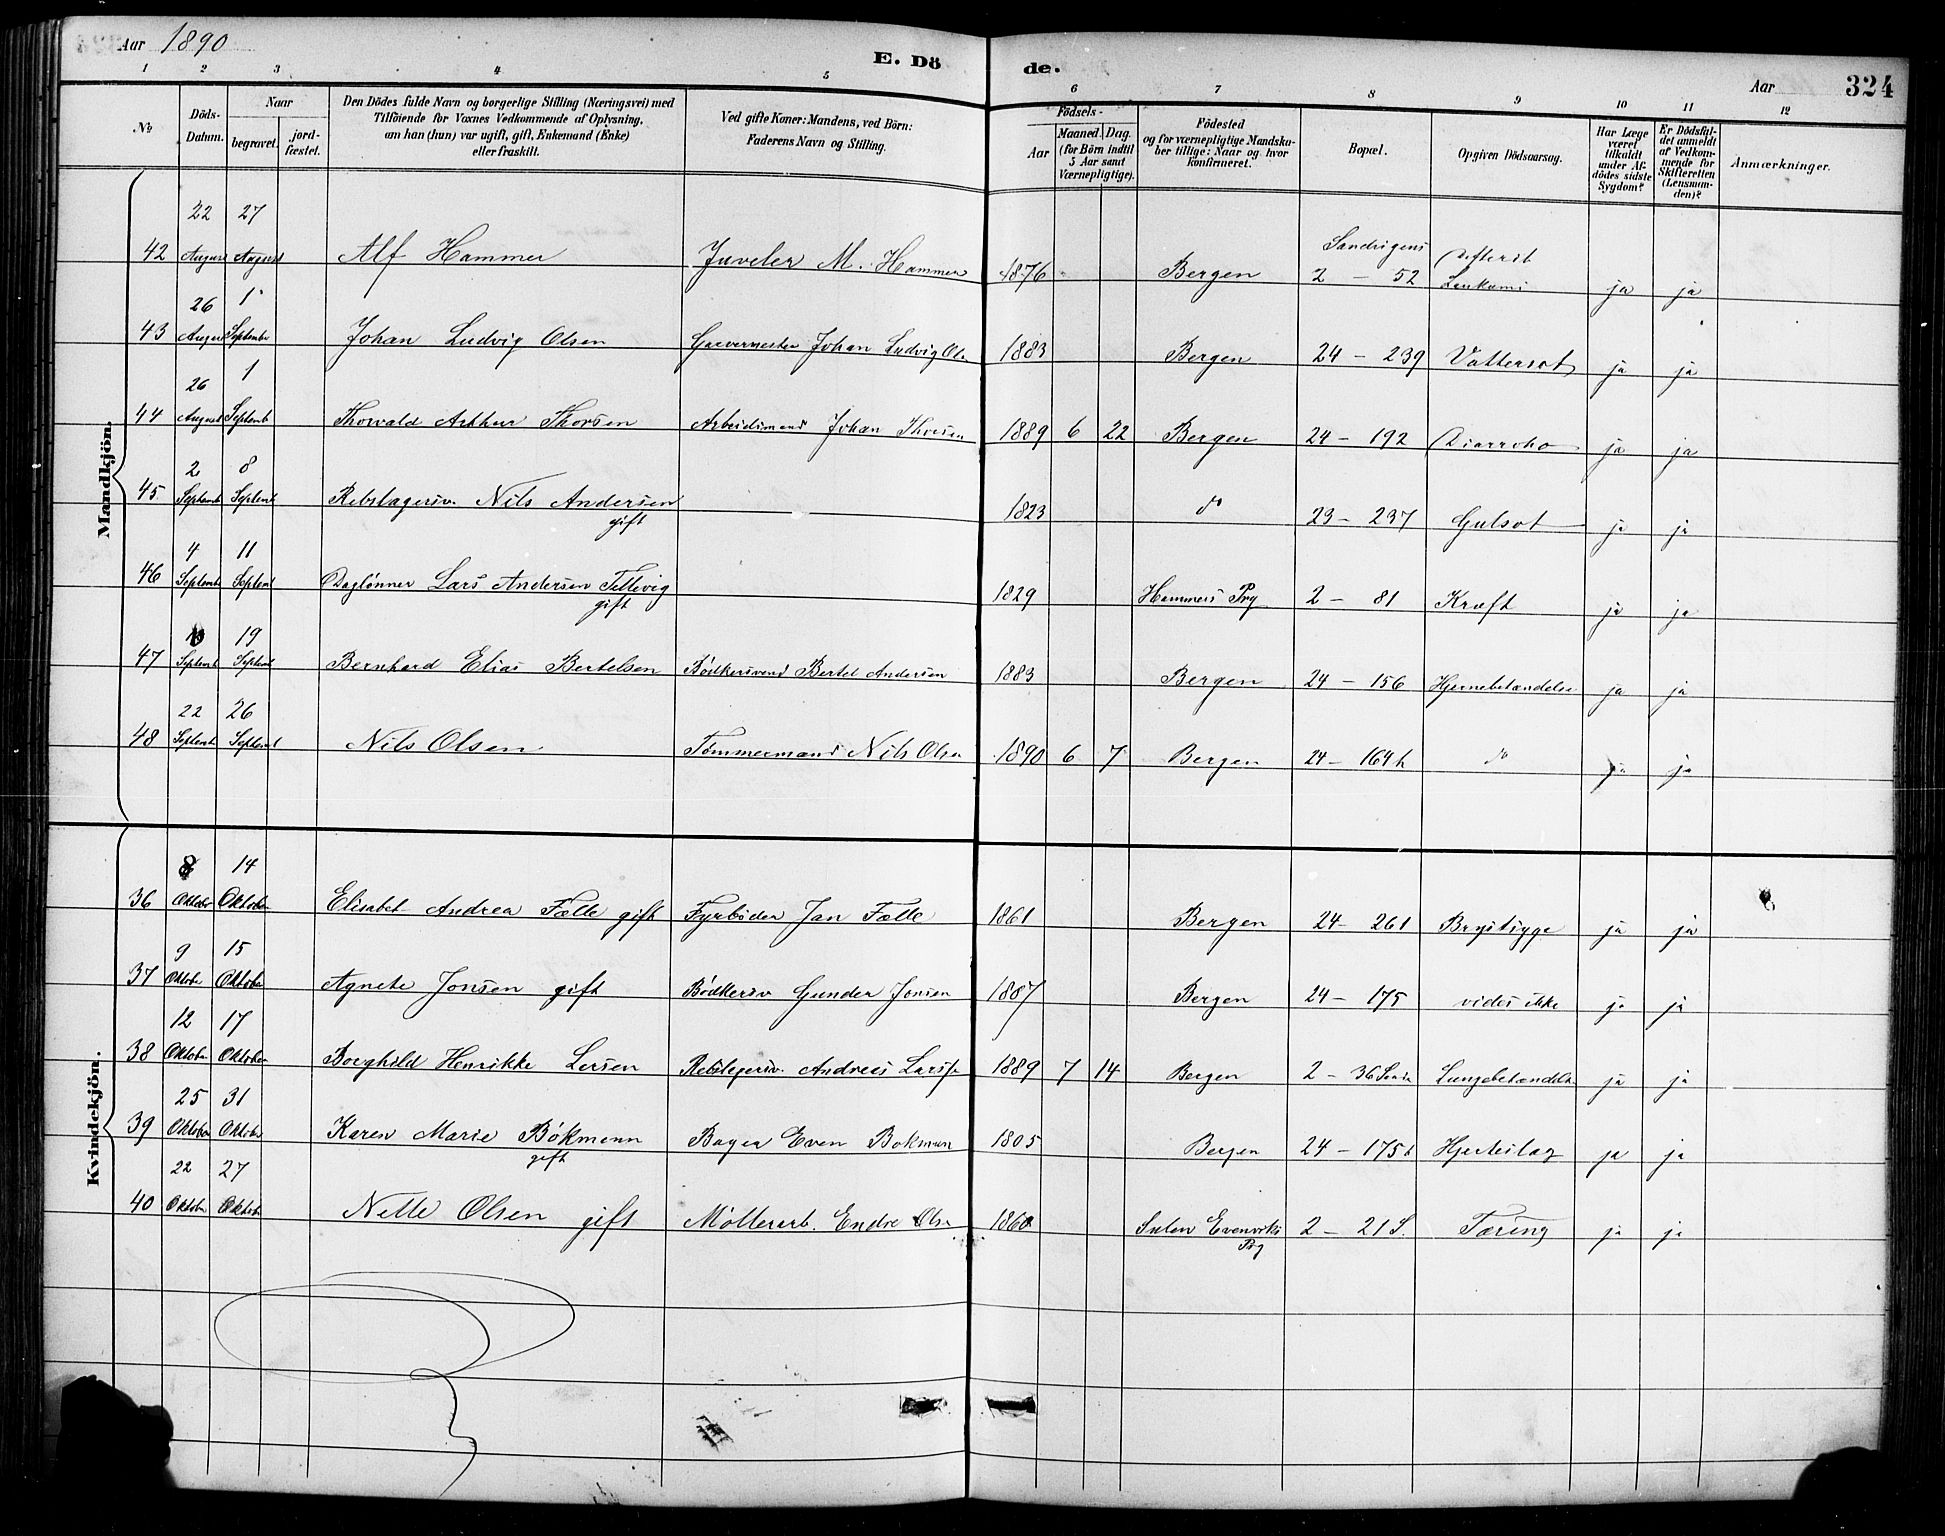 Aar 1890
E. Dö
de.
Aar
324
1 2 3 4 5 6 7 8 9 10 11 12
No
Döds-
Datum.
Naar
begravet.
jord-
fæstet.
Den Dödes fulde Navn og borgerlige Stilling (Næringsvei) med
Tilföiende for Voxnes Vedkommende af Oplysning,
om han (hun) var ugift, gift, Enkemand (Enke)
eller fraskilt.
Ved gifte Koner: Mandens, ved Börn:
Faderens Navn og Stilling.
Födsels-
Aar
Maaned. Dag.
(for Börn indtil
5 Aar samt
Værnepligtige).
Födested
og for værnepligtige Mandska-
ber tillige: Naar og hvor
konfirmeret.
Bopæl.
Opgiven Dödsaarsag.
Har Læge
været
tilkaldt
under Af-
dödes sidste
Sygdom?
Er Dödsfal-
det anmeldt
af Vedkom-
mende for
Skifteretten
(Lensman-
den)?
Anmærkninger.
Mandkjön.
22 27
42 August August Alf Hammer Juveler M. Hammer 1876 Bergen 2 – 52 ja ja
26 1
43 August September Johan Ludvig Olsen Johan Ludvig Olsen 1883 Bergen 24 – 239 Vattersot ja ja
26 1
44 August Septemb Thorvald Arthur Thorsen Arbeidsmand Johan Thorsen 1889 6 22 Bergen 24 – 192 Diarrohe ja ja
2 8
45 Septemb Septemb Rebslagersv. Nils Andersen 1823 do 23 – 237 Gulsot ja ja
gift
4 11
46 Septemb Septemb Daglønner Lars Andersen Tellevig 1829 Hammers Prg 2 – 81 Kræft ja ja
gift
19
47 Septemb Septemb Bernhard Elias Bertelsen Bødkersvend Bertel Andersen 1883 Bergen 24 – 156 Hjernebetændelse ja ja
22 26
48 Septemb Septemb Nils Olsen Tømmermand Nils Olsen 1890 6 7 Bergen 24 – 164 b do ja ja
Kvindekjön.
8 14
36 Oktober Oktober Elisabet Andrea Fælle gift Fyrbøder Jan Fælle 1861 Bergen 24 – 261 Brystsyge ja ja
9 15
37 Oktober Oktober Agnete Jonsen gift Bødkersv Gunder Jonsen 1807 Bergen 24 – 175 vides ikke ja ja
12 17
38 Oktober Oktober Borghild Henrikke Larsen Rebslagersv. Andreas Larsen 1889 7 14 Bergen 2 – 36 Lungebetændelse ja ja
25 31
39 Oktober Oktober Karen Marie Bøkmann Bager Even Bøkman 1805 Bergen 24 – 175 b Hjerteslag ja ja
gift
22 27
40 Oktober Oktober Nelle Olsen gift Møllerarb. Endre Olsen 1860 Sulen Evenviks 2 – 21 S. Tæring ja ja
Prg